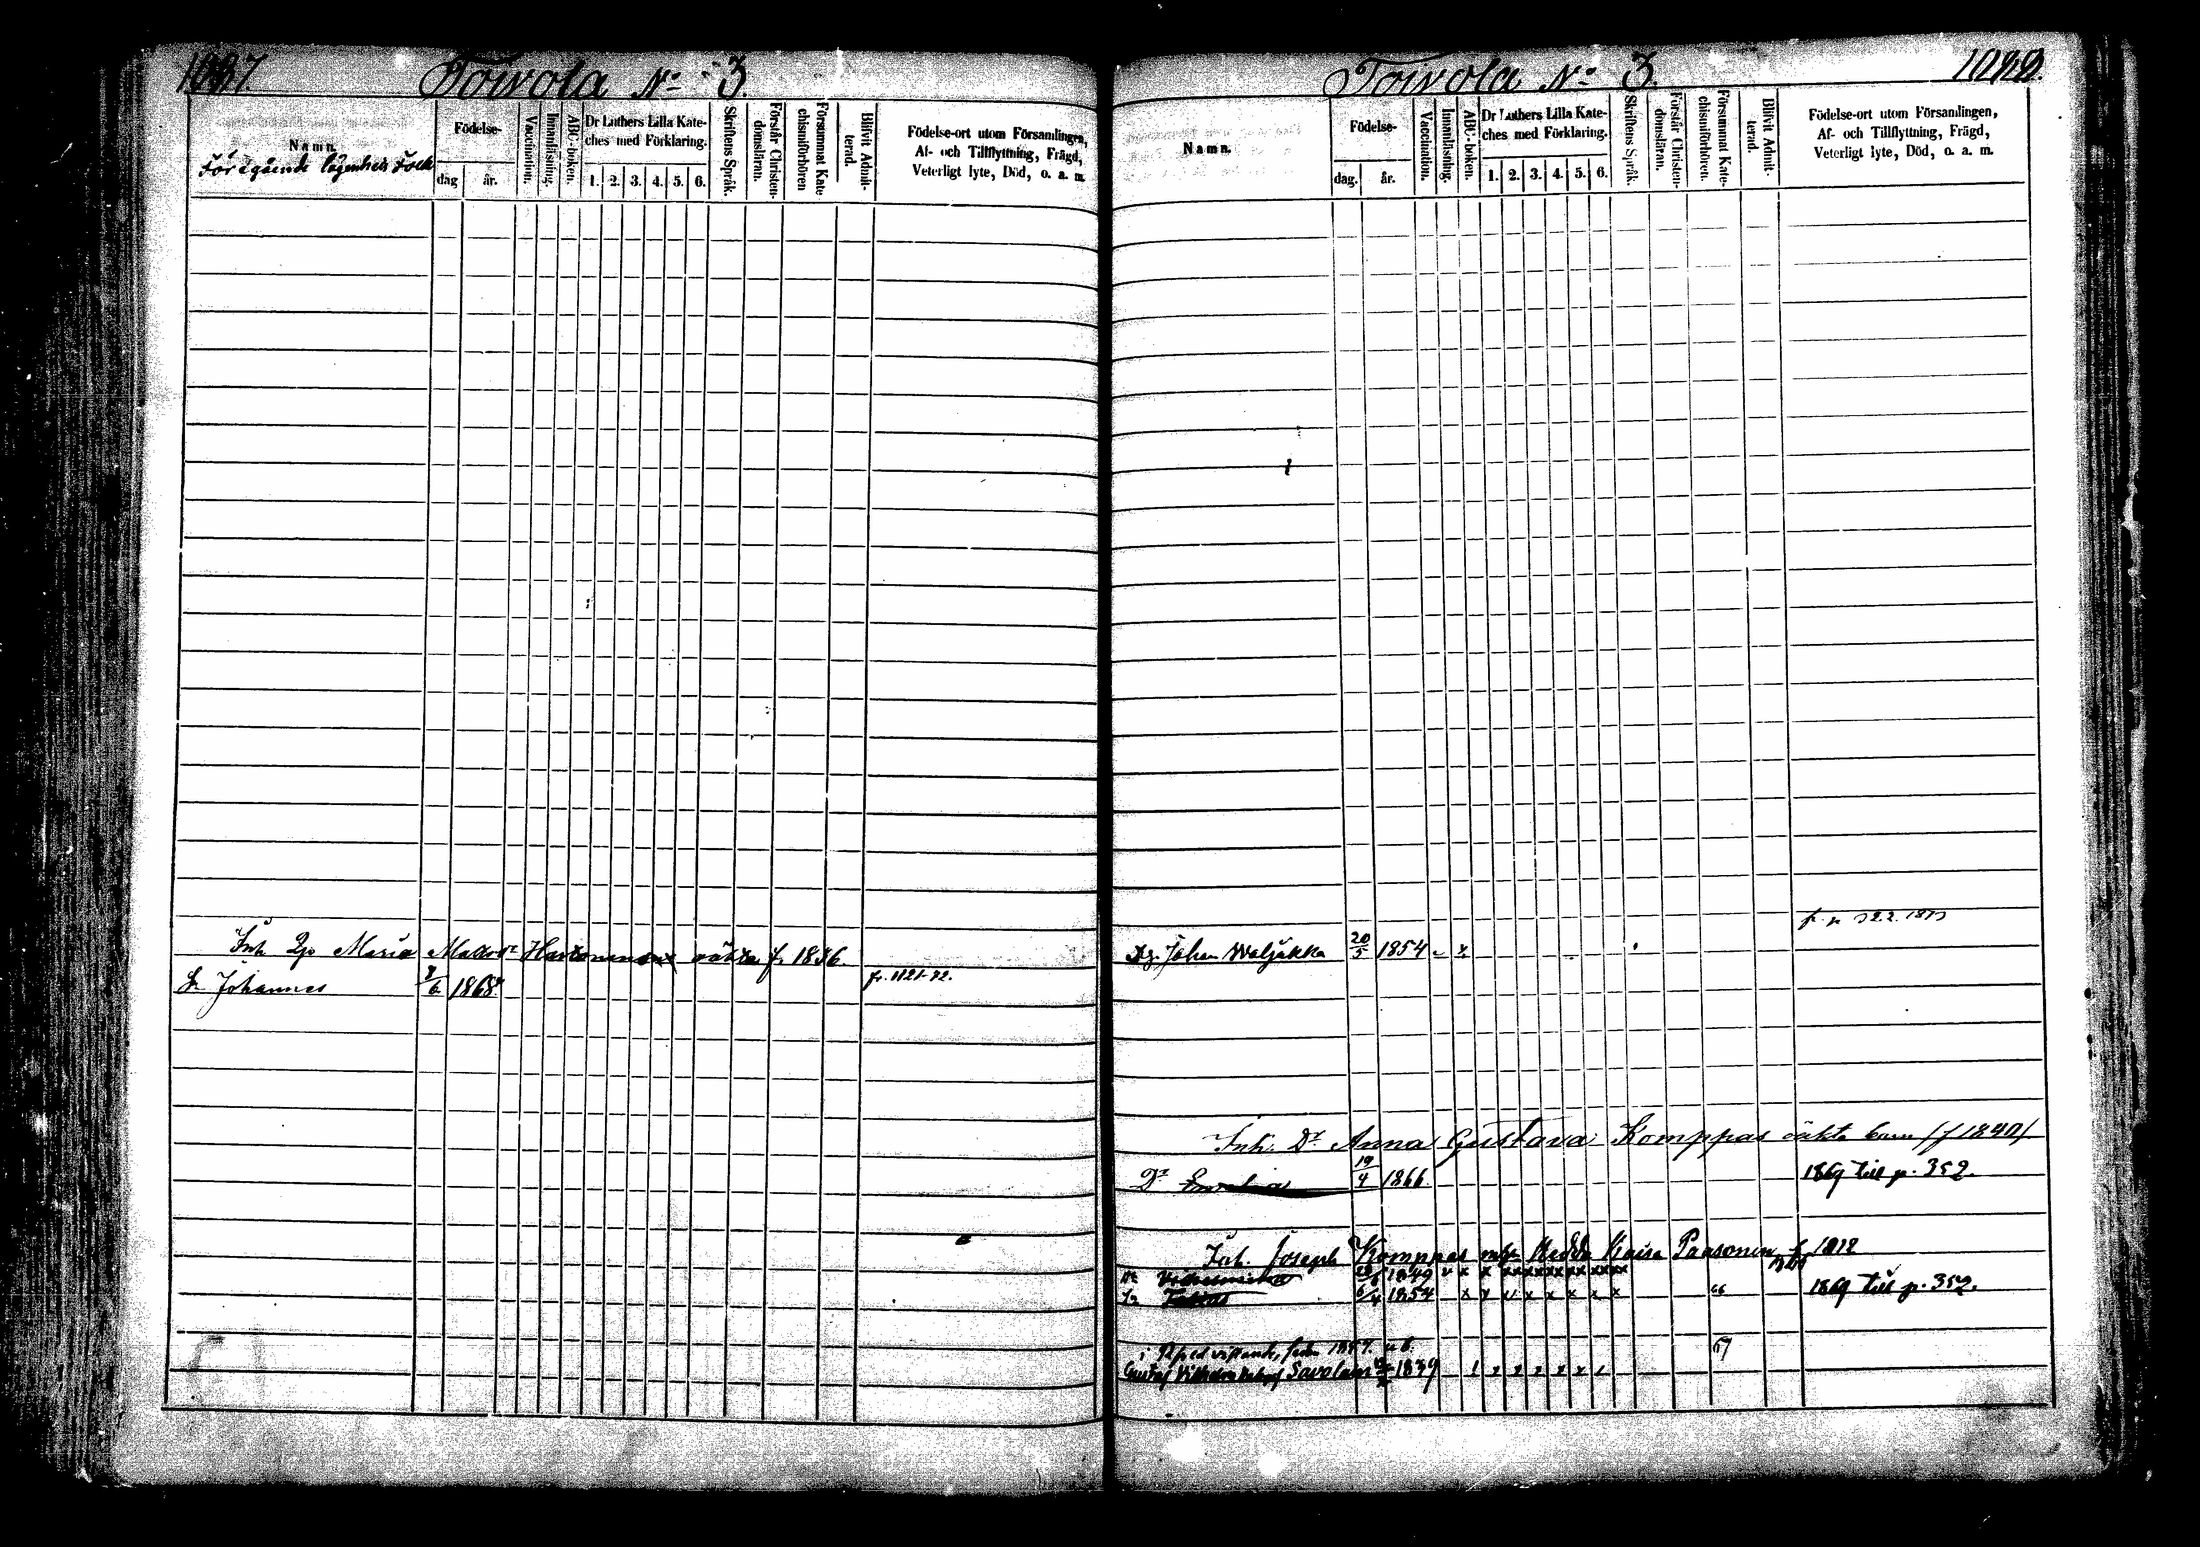 1087 Toivola No 3.
Namn.
Föregående lägenhets Folk
Födelse-
dag år.
Vaccination.
Innanläsning.
ABC-boken.
Dr Luthers Lilla Kate-
ches med Förklaring.
1. 2. 3. 4. 5. 6.
Skriftens Språk.
Förstår Christen-
domsläran.
Försummat Kate
chismiförhören
Blifvit Admit-
terad.
Födelse-ort utom Församlingen,
Af- och Tillflyttning, Frägd,
Veterligt lyte, Död, o. a. m.
Inh. Maria f. 1836.
Johannes 1868. fr. 1121-22.
Toivola No 3. 1088.
Namn.
Födelse-
dag. år.
Vaccination.
Innanläsning.
ABC-boken.
Dr Luthers Lilla Kate-
ches med Förklaring.
1. 2. 3. 4. 5. 6.
Skriftens Språk.
Förstår Christen-
domsläran.
Försummat Kate-
chismiförhören.
Blifvit Admit-
terad.
Födelse-ort utom Församlingen,
Af- och Tillflyttning, Frägd,
Veterligt lyte, Död, o. a. m.
Johan Waljakka 20/5 1854
Inh. Dr Anna Gustava Komppas oäkta barn (f 1840)
Dr 19/4 1866. 1869 till p. 352.
Inh. Joseph Komppas Hedda Kaisa Paasonen f. 1812
1849 x x x x x x x x
6/4 1854 x x x x x x x x 1869 till p. 352.
67
Gustaf Vilhelm Savolain 1839